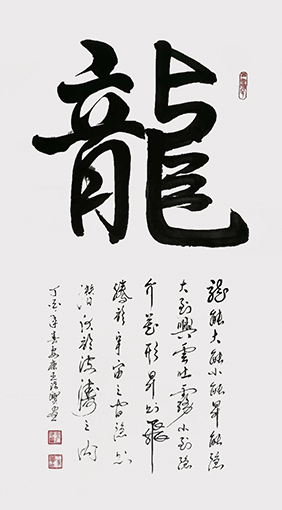 龍
龍能大能小能昇能隱
大則興雲吐霧小則隱
介藏形昇則飛
騰於宇宙之間隱則
潛伏於波濤之內
丁酉年春